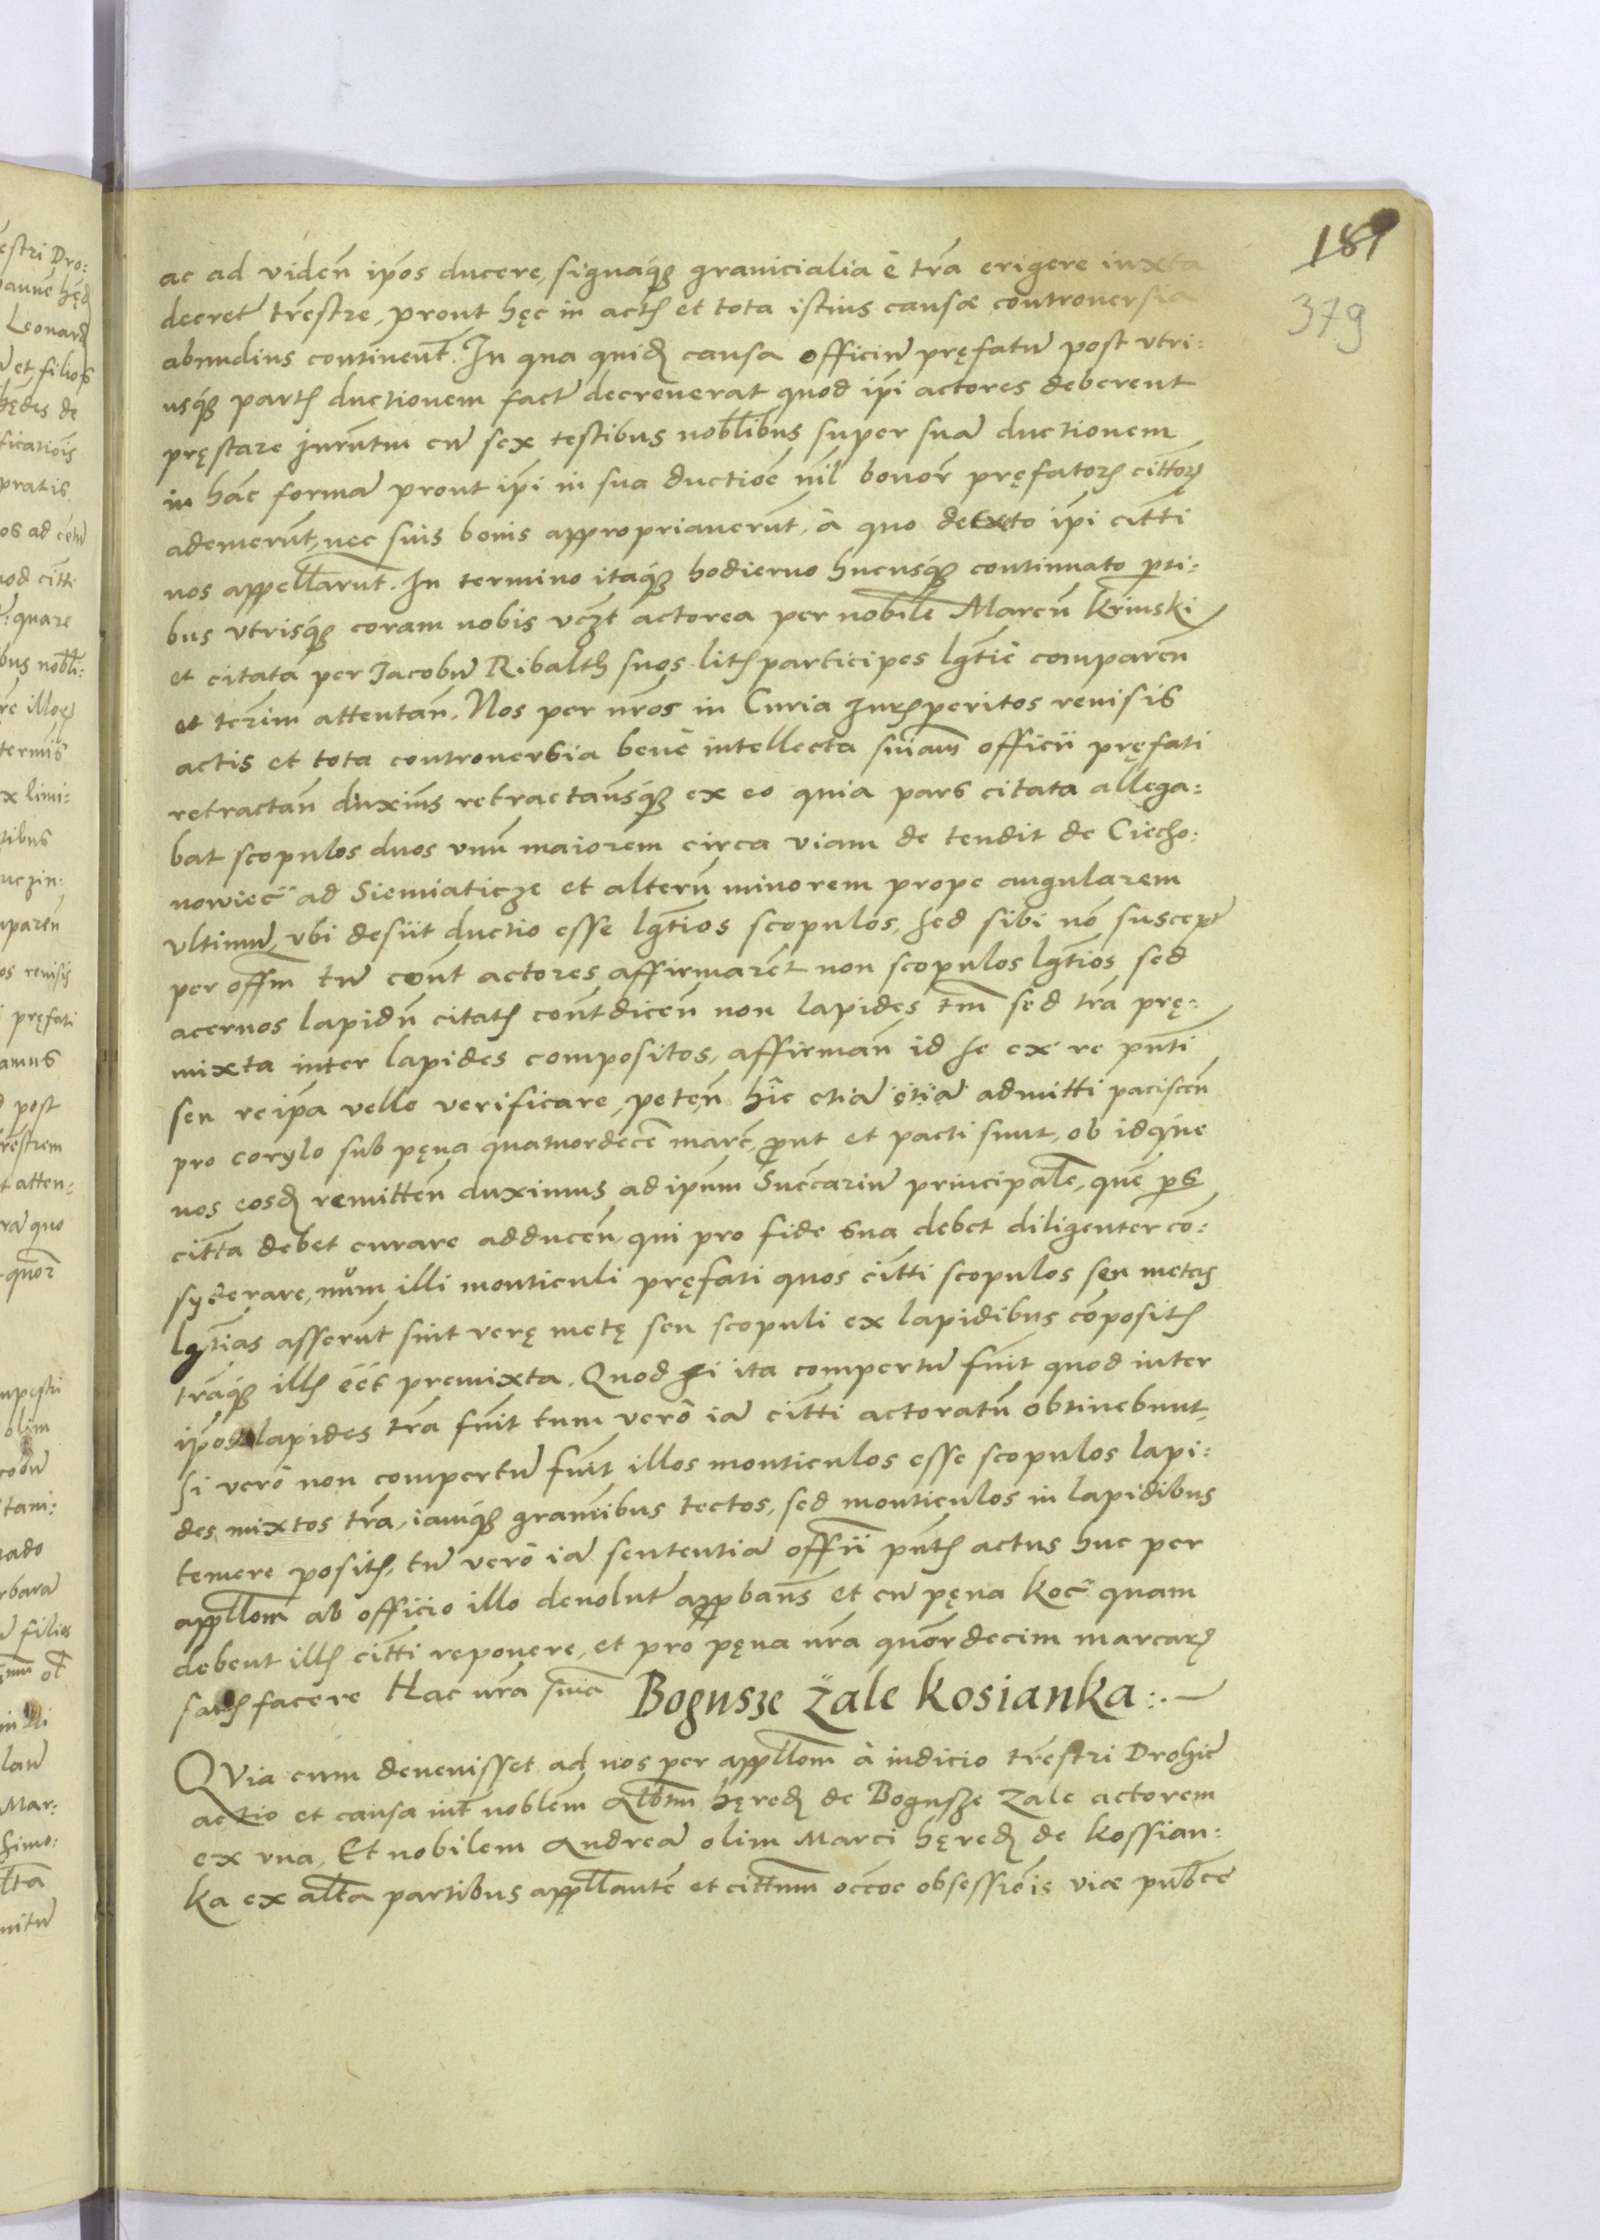 181
379
ac ad viden̄ ip̄os ducere, signaq́ꝫ granicialia ē tr̄a erigere iuxta
decretū tr̄estre, prout hęc in actꝭ et tota istius causæ controuersia
abundius continent᷑. In qua quidē causa officiū pręfatū post vtri⸗
usq́ꝫ partꝭ ductionem factā decreuerat quod ip̄i actores deberent
pręstare Jurn̄tm̄ cū sex testibus nobl̄ibus super suā ductionem
in hāc formā prout ip̄i in sua ductiōe nīl bonoꝝ pręfatoꝝ citt̄oꝝ
ademerūt, nec suis bonis appropriauerūt, à quo decreto ip̄i citt̄i
nos appellarūt. In termino itaq́ꝫ hodierno hucusq́ꝫ continuato ꝑti⸗
bus vtrisq́ꝫ coram nobis vcꝫt actorea per nobilē Marcū Krinski
et citata per Jacobū Ribalth suos litꝭ participes lgt̄ie comparen̄
et ter̄im attentan̄. Nos per nr̄os in Curia Jurꝭperitos reuisis
actis et tota controuersia benè intellecta sn̄iam officii pręfati
retractan̄ duximꝰ retractamusq́ꝫ ex eo quia pars citata allega⸗
bat scopulos duos vnū maiorem circa viam de tendit de Ciecho⸗
nowiec ad Siemiaticze et alterū minorem prope angularem
vltimū, vbi desiit ductio esse lgt̄ios scopulos, sed sibi nō susceptū
per offm̄ tū cont᷑ actores affirmaren̄t non scopulos lgt̄ios sed
aceruos lapidū citatꝭ cont᷑dicen̄ non lapides tm̄ sed tr̄a prę⸗
mixta inter lapides compositos, affirman̄ id se ex re pn̄ti
seu re ip̄a velle verificare, peten̄ hîc etiā etiā admitti paciscen̄
pro corylo sub pęna quatuordecē marc̄, ꝓut et pacti sunt, ob idq́ue
nos eosdē remitten̄ duximus ad ipsum Succariū principalē, quē ꝑs
citt̄a debet curare adducen̄, qui pro fide sua debet diligenter cō⸗
syderare, nům illi monticuli pręfati quos citt̄i scopulos seu metas
lgt̄ias asserūt sint verę metę seu scopuli ex lapidibus cōpositꝭ
tr̄aq́ꝫ illꝭ eēt premixta. Quod si ita compertū fuīt quod inter
ip̄os lapides tr̄a fuīt tum verò iā citt̄i actoratū obtinebunt,
si verò non compertū fuīt illos monticulos esse scopulos lapi⸗
des mixtos tr̄a, iamq́ꝫ gramībus tectos, sed monticulos in lapidibus
temere positꝭ, tū verò iā sententiā offīi pn̄tꝭ actus huc per
appllōm ab officio illo deuolutū apꝓbamꝰ et cū pęna Koc̄ quam
debent illꝭ citt̄i reponere, et pro pęna nr̄a quoꝛdecim marcaꝝ
satꝭfacere Hac nr̄a sn̄ia
Bogusze Żale Kosianka
QVia cum deuenisset ad nos per appllōm à iudicio tr̄estri Drohic̄
actio et causa int᷑ nobl̄em Albtū hęredē de Bogusze Zale actorem
ex vna, Et nobilem Andreā olim Marci hęredē de Kossian⸗
ka ex altā partibus appllantē et citt̄um occōe obsessiōis viæ publicē